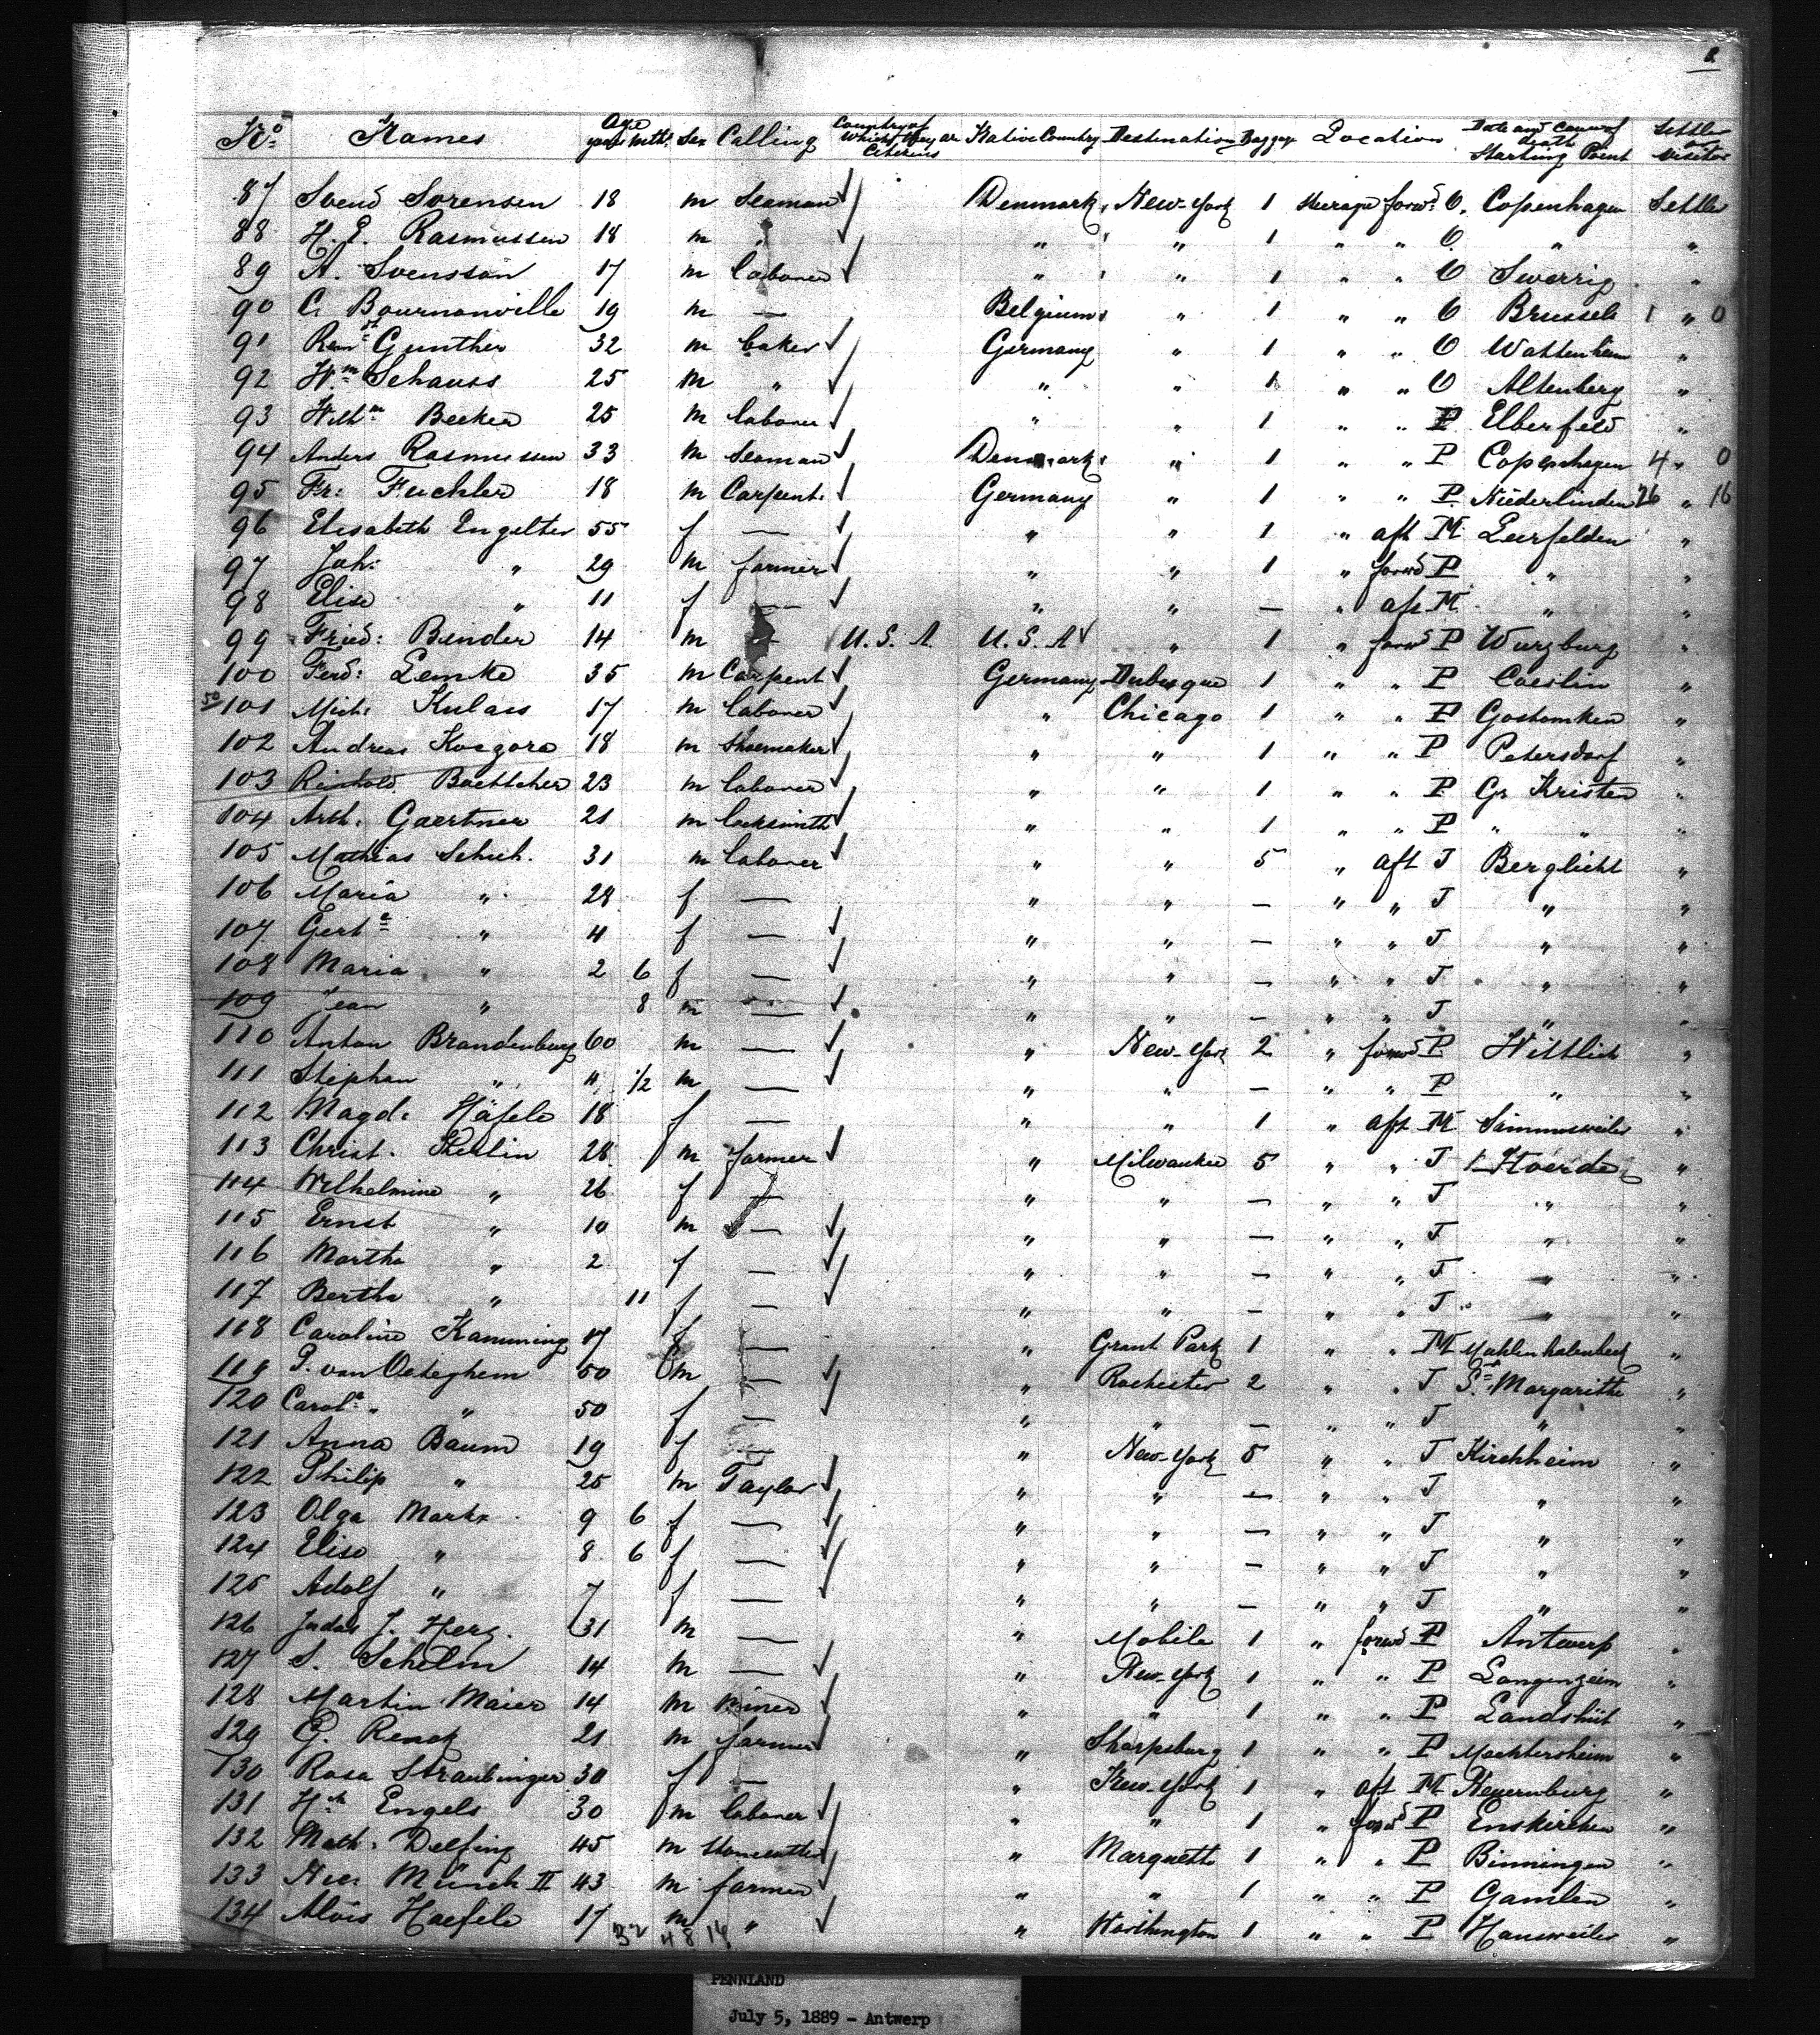 2
No. Names Age years mths. Sex Calling Country of which they are Citizens Native Country Destination Baggage Location Date and Cause of death Starting Point Settler or Visitor
87 Svend Sorensen 18 m Seaman Denmark New-York 1 Steerage forwd. O. Copenhagen Settler
88 H. E. Rasmussen 18 m " " " 1 " " O. " "
89 A. Svensson 17 m laborer " " 1 " " O Swerrig "
90 C. Bournonville 19 m — Belgium " 1 " " O Brussels 1 " 0
91 Gunther 32 m baker Germany " 1 " " O Wattenheim "
92 Wm. Schauss 25 m " " " 1 " " O Altenberg "
93 Wilhm. Becker 25 m laborer " " 1 " " P Elberfeld "
94 Anders Rasmussen 33 m Seaman Denmark " 1 " " P Copenhagen 4 " 0
95 Fr: Fuchler 18 m Carpent. Germany " 1 " " P Niederlinden 26 " 16
96 Elisabeth Engelter 55 f — " " 1 " aft M Leerfelden "
97 Joh: " 29 m farmer " " 1 " forwd P " "
98 Elise " 11 f — " " — " aft M " "
99 Fried: Binder 14 m — U.S.A. U.S.A " 1 " forwd P Wurzburg "
100 Ferd: Lemke 35 m Carpent Germany Dubuque 1 " " P Coeslin "
50 101 Mich: Kulais 17 m laborer " Chicago 1 " " P Gostomken "
102 Andreas Kozgora 18 m Shoemaker " " 1 " " P Petersdorf "
103 Reinhold Boettcher 23 m laborer " " 1 " " P Gr Kristen "
104 Arth. Gaertner 21 m locksmith " " 1 " " P " " "
105 Mathias Schuh. 31 m laborer " " 5 " aft J Berglicht "
106 Maria " 28 f — " " — " " J " "
107 Gert " 4 f — " " — " " J " "
108 Maria " 2 6 f — " " — " " J " "
109 Jean " 8 m — " " — " " J " "
110 Anton Brandenburg 60 m — " New-York 2 " forwd P Wittlich "
111 Stephan " 11 1/2 m — " " — " " P " "
112 Magd: Häfele 18 f — " " 1 " aft M "
113 Christ. 28 m farmer " Milwaukee 5 " " J Hoerde "
114 Wilhelmine " 26 f — " " — " " J " "
115 Ernst " 10 m — " " — " " J " "
116 Martha " 2 f — " " — " " J " "
117 Bertha " 11 f — " " — " " J " "
118 Caroline Kamming 17 f — " Grant Park 1 " " M "
119 P. van Oeteghem 50 m — " Rochester 2 " " J St. Margarithe "
120 Carol. " 50 f — " " — " " J " "
121 Anna Baum 19 f — " New-York 5 " " J Kirchheim "
122 Philip " 25 m Taylor " " — " " J " "
123 Olga Markx 9 6 f — " " — " " J " "
124 Elise " 8 6 f — " " — " " J " "
125 Adolf " 7 f — " " — " " J " "
126 Judas J. Herz. 31 m — " Mobile 1 " forwd P Antwerp "
127 S. Schelm 14 m — " New-York 1 " " P Langenzeim "
128 Martin Maier 14 m miner " " 1 " " P Landshüt "
129 G. Renck 21 m farmer " Sharpsburg 1 " " P Mechtersheim "
130 Rosa Straubinger 30 f — " New-York 1 " aft M Neuernburg "
131 Hch Engels 30 m laborer " " 1 " forwd P Enskirchen "
132 Math. Delfing 45 m Stonecutter " Marquette 1 " " P Binningen "
133 Nic: Münch II 43 m farmer " " 1 " " P Gamlen "
134 Alois Haefele 17 m " " Worthington 1 " " P Hansweiler "
32 48 14
PENNLAND
July 5, 1889 - Antwerp